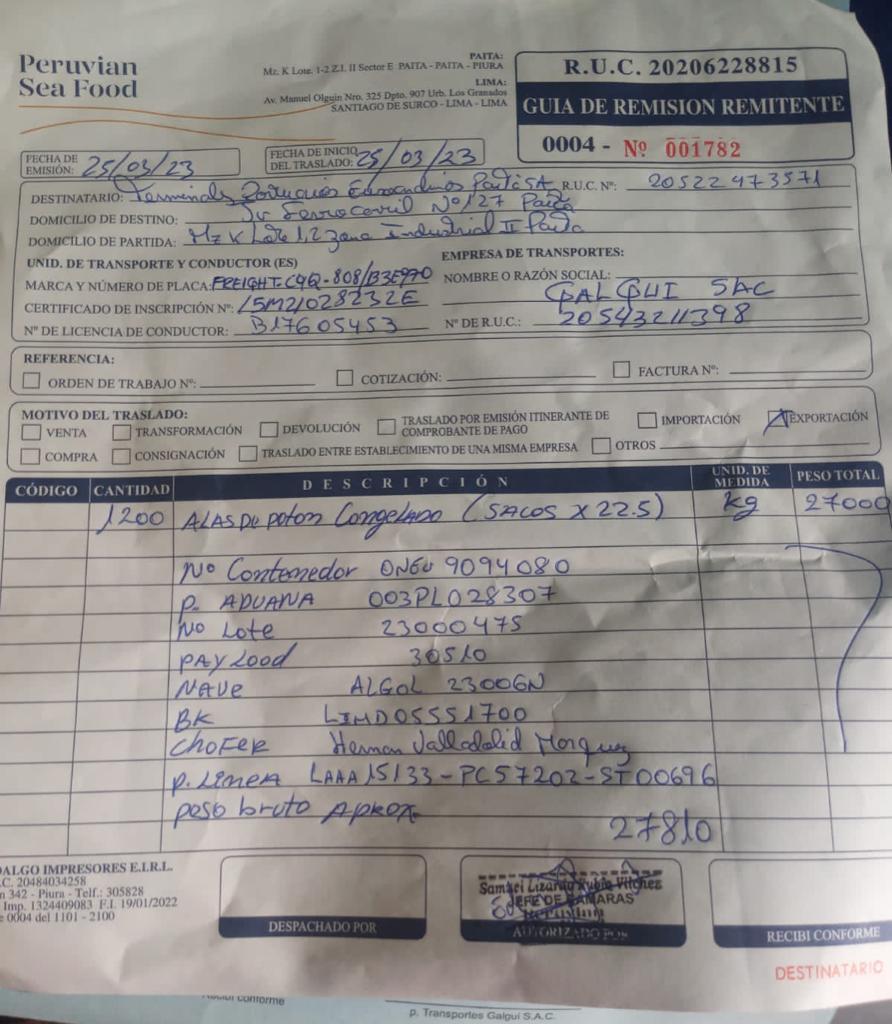 Peruvian
Sea Food
PAITA:
Mz. K Lote. 1-2 Z.I. II Sector E PAITA - PAITA - PIURA
LIMA:
Av. Manuel Olguin Nro. 325 Dpto. 907 Urb. Los Granados
SANTIAGO DE SURCO - LIMA - LIMA
R.U.C. 20206228815
GUIA DE REMISION REMITENTE
0004 - Nº 001782
FECHA DE EMISIÓN: 25/03/23
FECHA DE INICIO DEL TRASLADO: 25/03/23
DESTINATARIO: Terminales Portuarios Euroandinos Paita SA R.U.C. Nº: 20522473571
DOMICILIO DE DESTINO: Jr Ferrocarril Nº127 Paita
DOMICILIO DE PARTIDA: Mz K Lote 1,2 zona Industrial II Paita
UNID. DE TRANSPORTE Y CONDUCTOR (ES)
MARCA Y NÚMERO DE PLACA: FREIGHT-C9Q-808/B3E970
CERTIFICADO DE INSCRIPCIÓN Nº: 15M21028232E
Nº DE LICENCIA DE CONDUCTOR: B17605453
EMPRESA DE TRANSPORTES:
NOMBRE O RAZÓN SOCIAL: GALGUI SAC
Nº DE R.U.C.: 20543211398
REFERENCIA:
ORDEN DE TRABAJO Nº: COTIZACIÓN: FACTURA Nº:
MOTIVO DEL TRASLADO:
VENTA TRANSFORMACIÓN DEVOLUCIÓN TRASLADO POR EMISIÓN ITINERANTE DE COMPROBANTE DE PAGO IMPORTACIÓN EXPORTACIÓN
COMPRA CONSIGNACIÓN TRASLADO ENTRE ESTABLECIMIENTO DE UNA MISMA EMPRESA OTROS
CÓDIGO CANTIDAD DESCRIPCIÓN UNID. DE MEDIDA PESO TOTAL
1200 ALAS DE POTON Congelado (SACOS X 22.5) kg 27000
No Contenedor ONEU 9094080
P. ADUANA 003PL028307
No Lote 23000475
PAYLOOD 30510
NAVE ALGOL 23006N
BK LIMD05551700
CHOFER Hernan Valladolid Morquez
P. LINEA LAAA15133-PC57202-ST00696
peso bruto Aprox. 27810
ALGO IMPRESORES E.I.R.L.
.C. 20484034258
n 342 - Piura - Telf.: 305828
Imp. 1324409083 F.I. 19/01/2022
e 0004 del 1101 - 2100
DESPACHADO POR
Samuel Lizardo Rubio Vilchez
JEFE DE CAMARAS
AUTORIZADO POR
RECIBI CONFORME
DESTINATARIO
Recibi conforme
p. Transportes Galgui S.A.C.